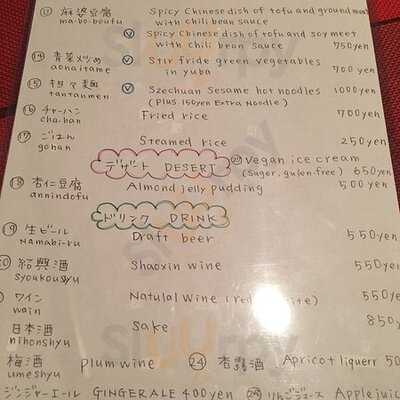 ⑬ 麻婆豆腐 Spicy Chinese dish of tofu and ground meat
ma-bo-doufu with chili bean sauce
Ⓥ Spicy Chinese dish of tofu and soy meet
with chili bean Sauce 750yen
⑭ 青菜炒め Ⓥ Stir fride green vegetables
aonaitame in yuba 700 yen
⑮ 担々麺 Ⓥ Szechuan Sesame hot noodles 1000yen
tantanmen (Plus 150yen Extra Noodle)
⑯ チャーハン Fried rice 700yen
cha-han
⑰ ごはん Steamed rice 250 yen
gohan
デザート DESERT Vegan ice cream
(Suger, gluten free) 650yen
⑱ 杏仁豆腐 Almond jelly pudding 500 yen
annindofu
ドリンク DRINK
⑲ 生ビール Draft beer 550yen
Namabi-ru
紹興酒 Shaoxin wine 550yen
syoukousyu
ワイン Natulal wine 550ye
wain
日本酒 Sake 850
nihonshyu
梅酒 plum wine ㉔ 杏露酒 Apricot liquerr 50
umeshyu
ジンジャーエール GINGERALE 400yen りんごジュース Apple juice